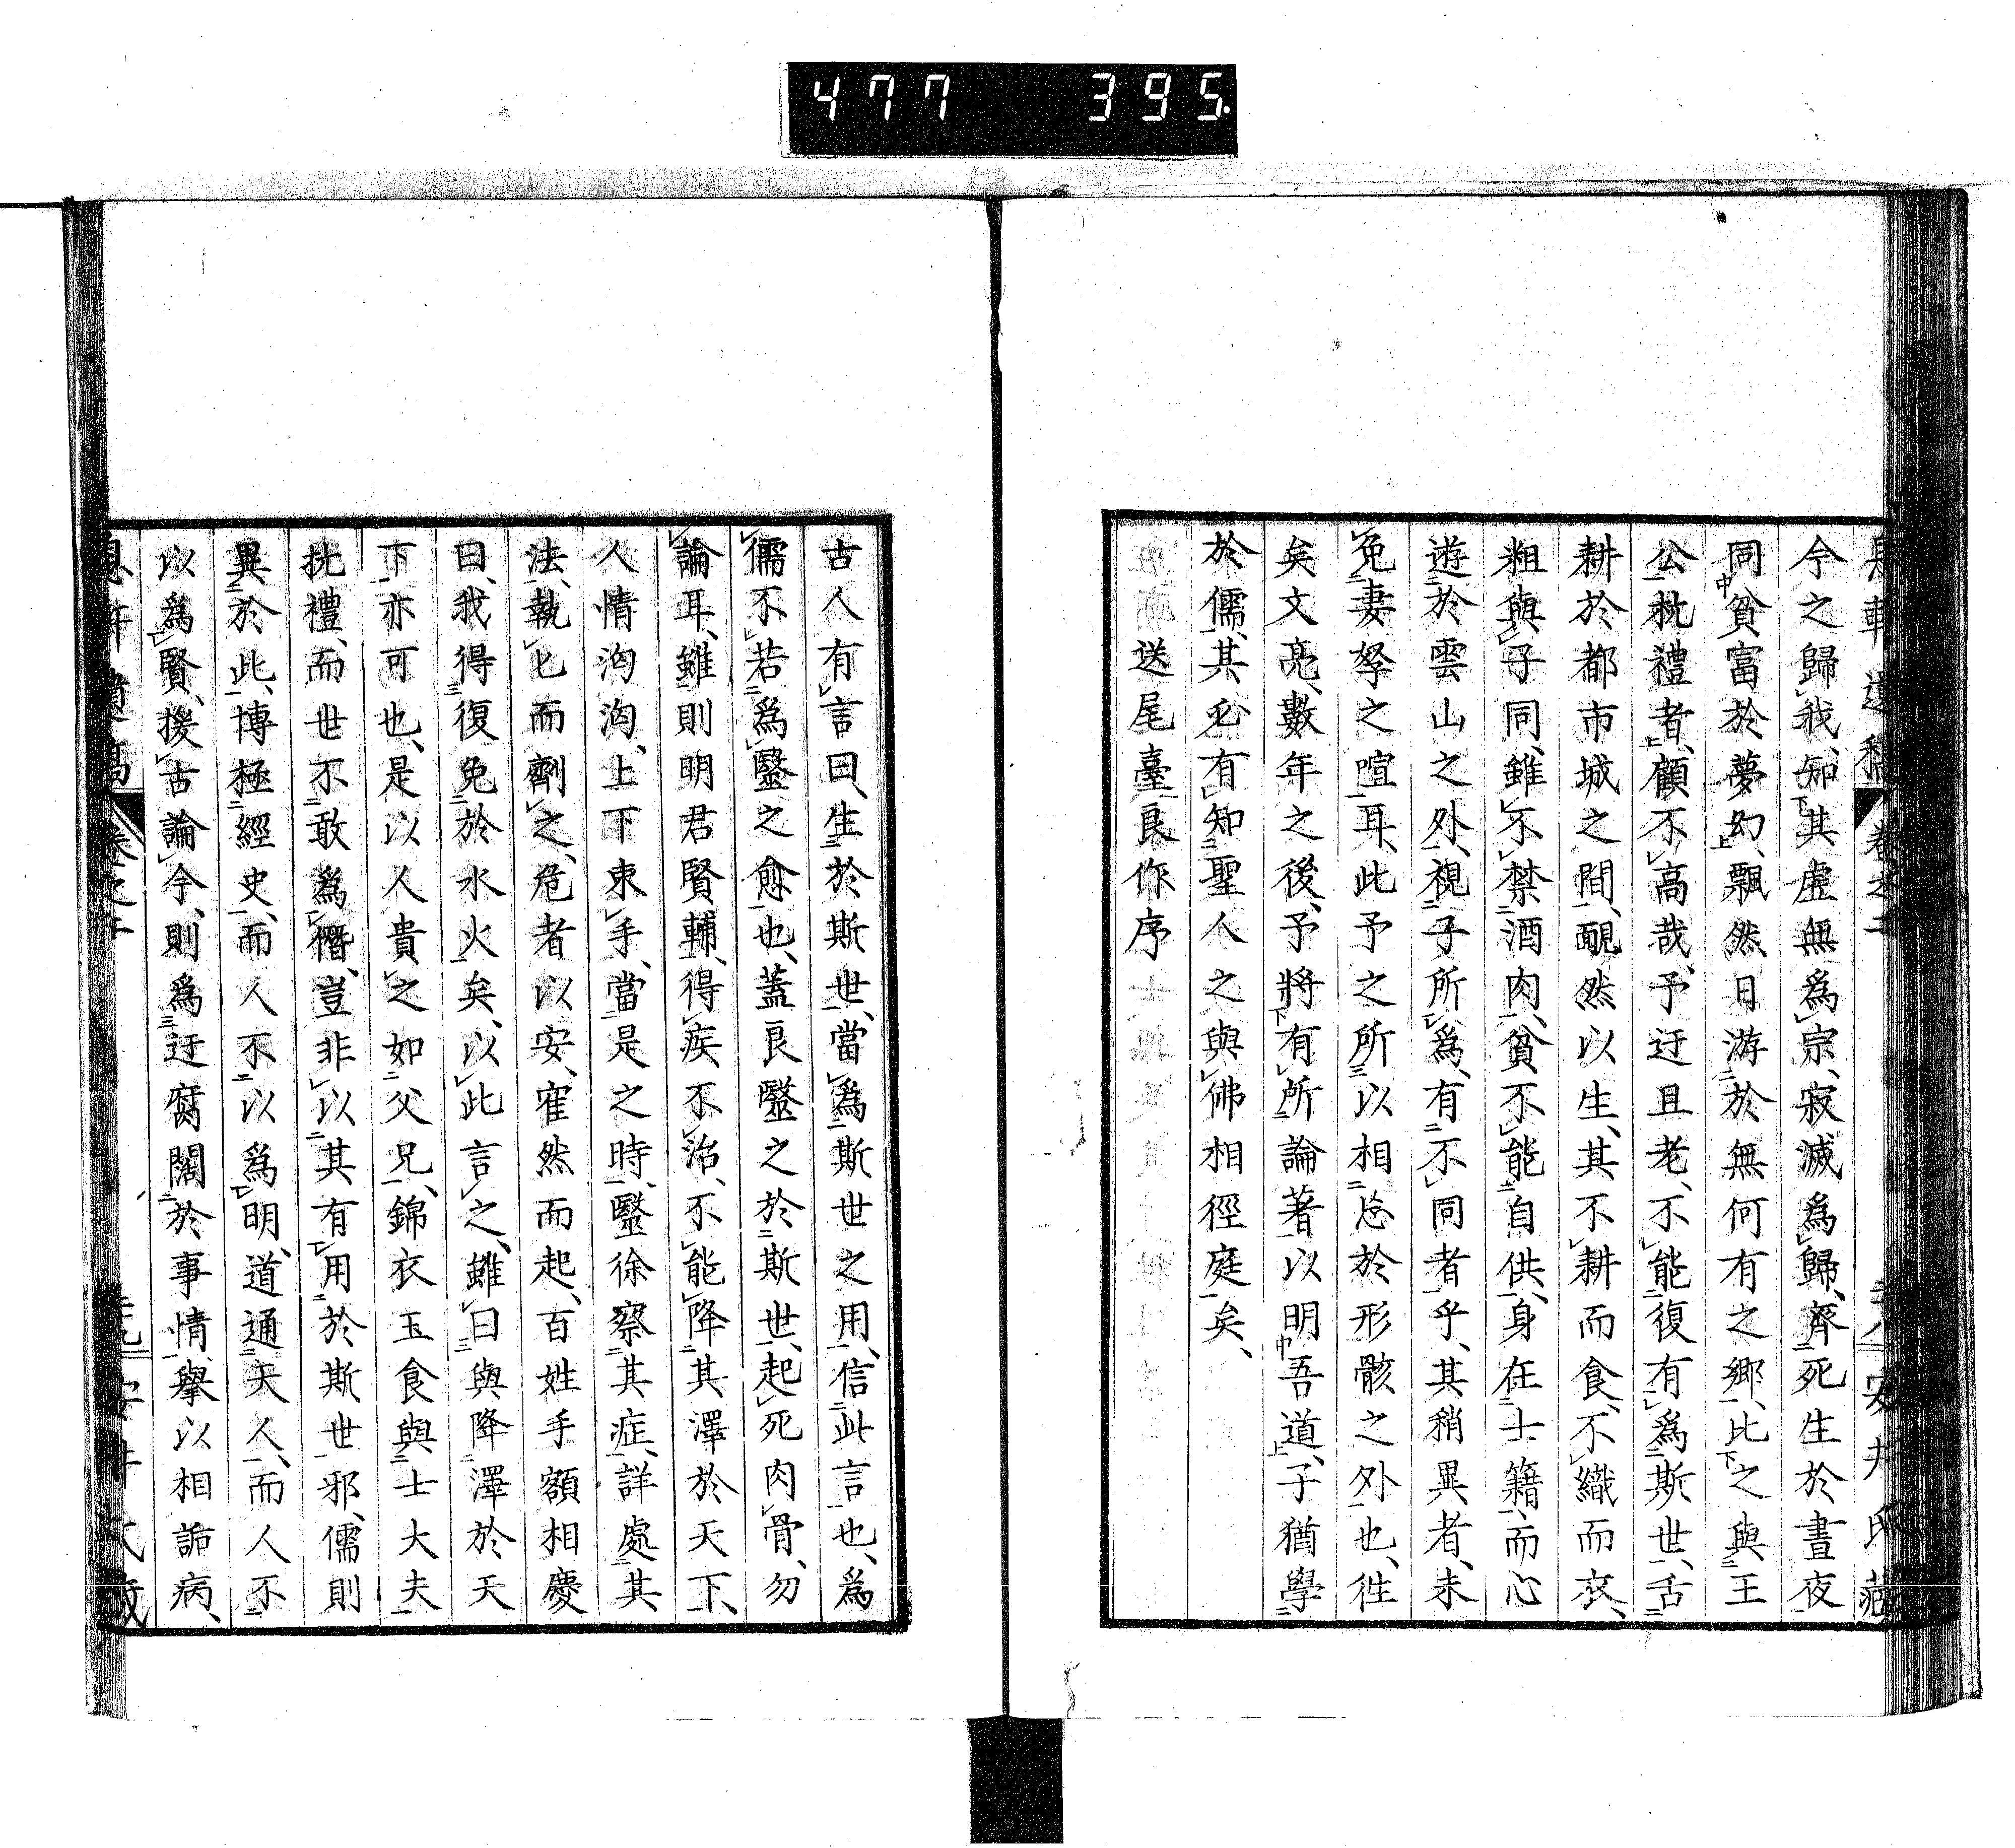 477 395
息軒遺稿 卷之二 安井氏藏
今之歸我、知其虛無爲宗、寂滅爲歸、齊死生於晝夜
同貧富於夢幻、飄然日游於無何有之鄉、比之與王
公抗禮者、顧不高哉、予迂且老、不能復有爲斯世、舌
耕於都市城之間、靦然以生、其不耕而食、不織而衣、
粗與子同、雖不禁酒肉、貧不能自供、身在士籍、而心
遊於雲山之外、視子所爲、有不同者乎、其稍異者、未
免妻孥之喧耳、此予之所以相忘於形骸之外也、徃
矣文亮、數年之後、予將有所論著以明吾道、子猶學
於儒、其必有知聖人之與佛相徑庭矣、
送尾臺良作序
古人有言曰、生於斯世、當爲斯世之用、信此言也、爲
儒不若爲醫之愈也、蓋良醫之於斯世、起死肉骨、勿
論耳、雖則明君賢輔、得疾不治、不能降其澤於天下、
人情洶洶、上下束手、當是之時、醫徐察其症、詳處其
法、執匕而劑之、危者以安、寉然而起、百姓手額相慶
曰、我得復免於水火矣、以此言之、雖曰與降澤於天
下亦可也、是以人貴之如父兄、錦衣玉食與士大夫
抗禮、而世不敢爲僭、豈非以其有用於斯世邪、儒則
異於此、博極經史、而人不以爲明、道通天人、而人不
以爲賢、援古論今、則爲迂腐闊於事情、擧以相詬病、
息軒遺稿 卷之二 安井氏藏